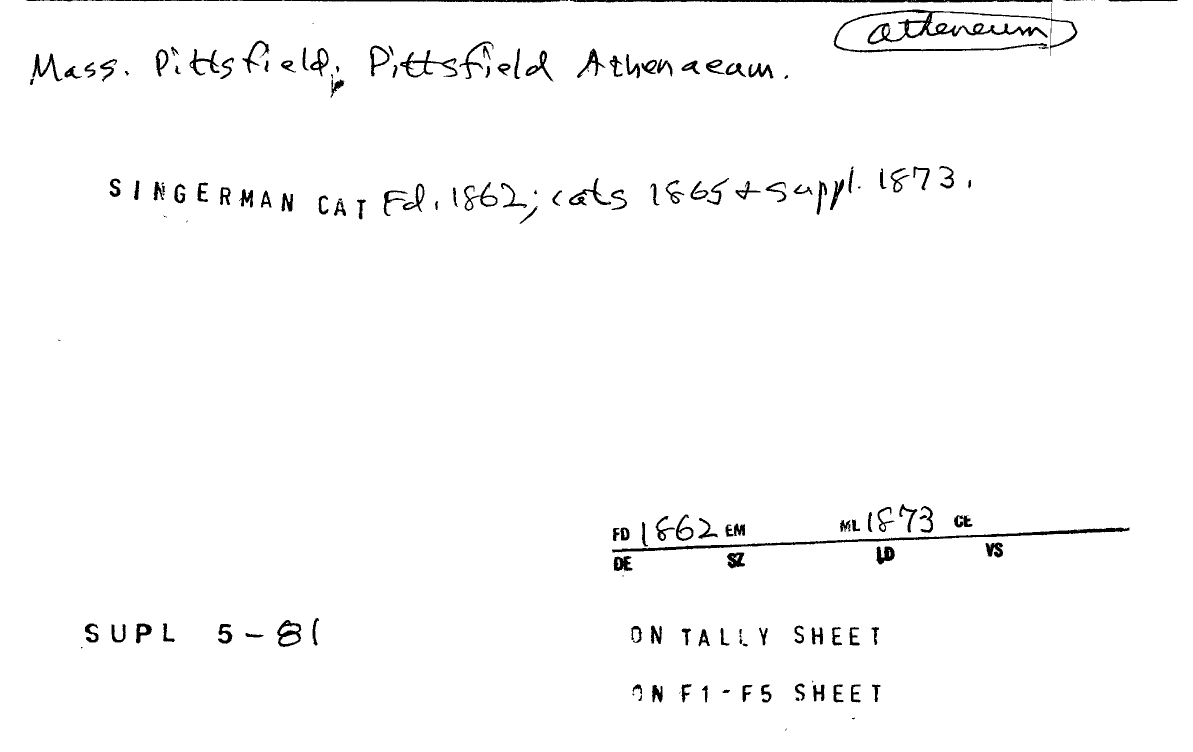 atheneum
Mass. Pittsfield. Pittsfield Athenaeum.
SINGERMAN CAT Fd. 1862; cats 1865 + suppl. 1873.
FD 1862 EM ML 1873 CE
DE SZ LD VS
SUPL 5-81 ON TALLY SHEET
ON F1-F5 SHEET